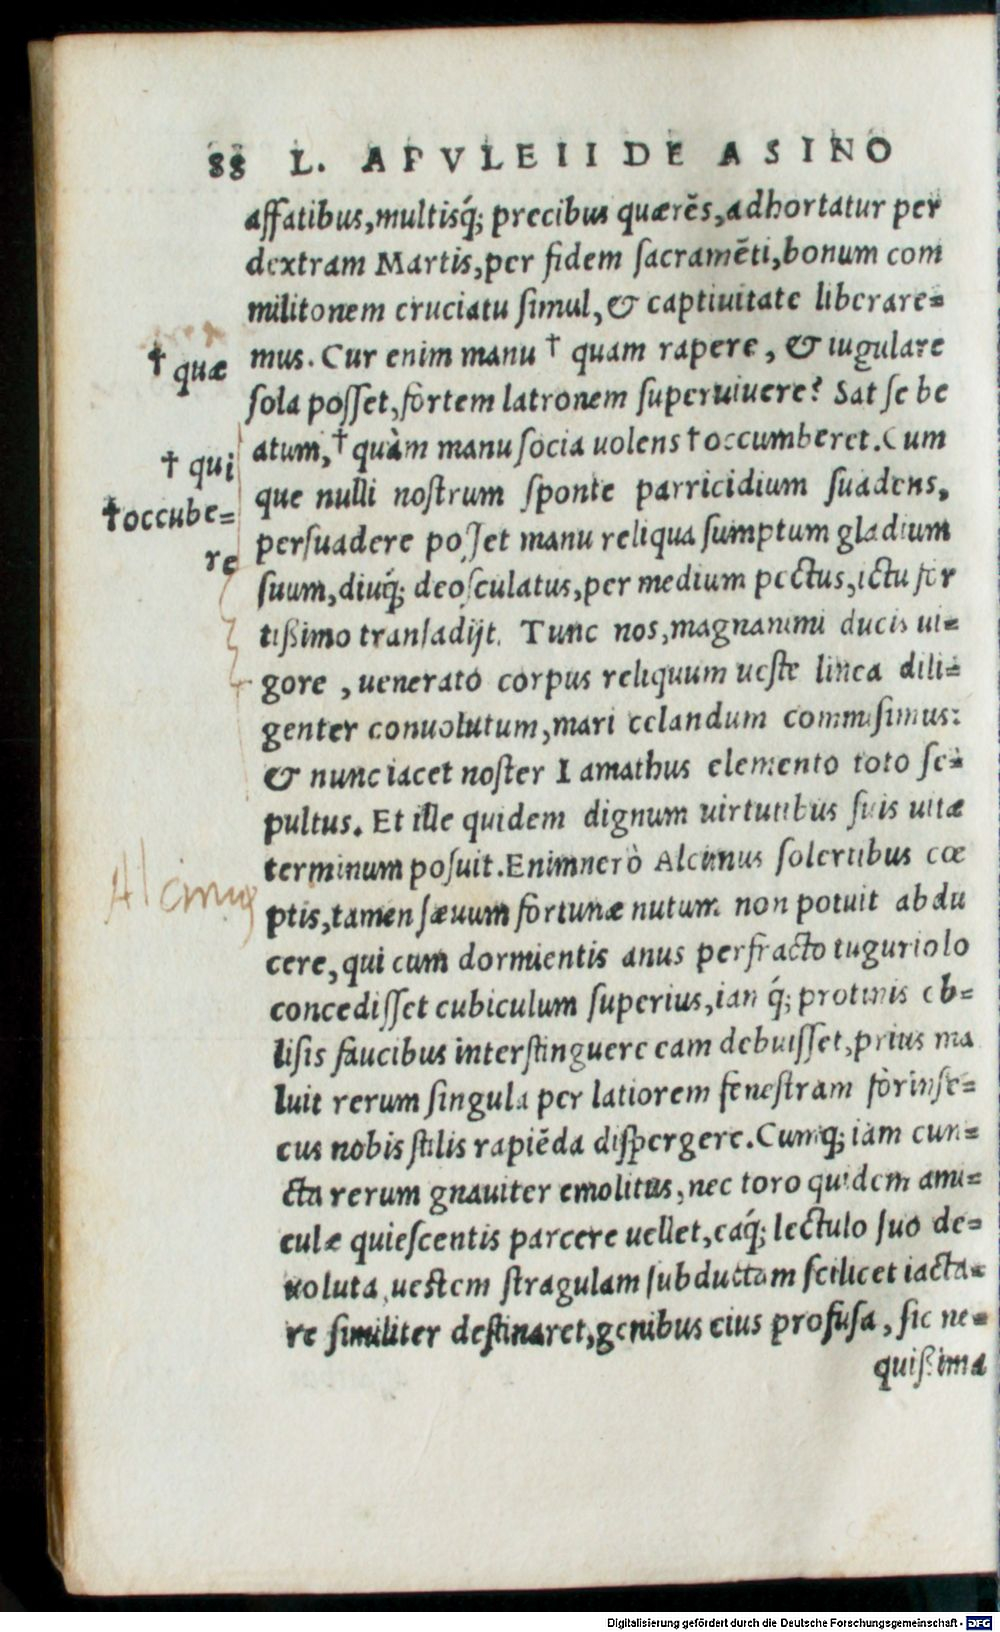 88 L. APVLEII DE ASINO
affatibus, multisq́; precibus quærẽs, adhortatur per
dextram Martis, per fidem sacramẽti, bonum com
militonem cruciatu simul, & captiuitate liberare=
† quæ
mus. Cur enim manu † quam rapere, & iugulare
sola posset, fortem latronem superuiuere? Sat se be
† qui
atum, † quàm manu socia uolens † occumberet. Cum
†occube=
que nulli nostrum sponte parricidium suadens,
re
persuadere posset manu reliqua sumptum gladium
suum, diuq́; deosculatus, per medium pectus, ictu for
tißimo transadijt. Tunc nos, magnanimi ducis ui=
gore, uenerato corpus reliquum ueste linea dili=
genter conuolutum, mari celandum commisimus:
& nunc iacet noster Lamathus elemento toto se=
pultus. Et ille quidem dignum uirtutibus suis uitæ
terminum posuit. Enimnerò Alcimus solertibus cœ
Alcimus
ptis, tamen sæuum fortunæ nutum non potuit abdu
cere, qui cum dormientis anus perfracto tuguriolo
concedisset cubiculum superius, iamq́; protinus ob=
lisis faucibus interstinguere eam debuisset, prius ma
luit rerum singula per latiorem fenestram forinse=
cus nobis stilis rapiẽda dispergere. Cumq; iam cun=
cta rerum gnauiter emolitus, nec toro quidem ami=
culæ quiescentis parcere uellet, eaq́; lectulo suo de=
uoluta, uestem stragulam subductam scilicet iacta=
re similiter destinaret, genibus eius profusa, sic ne=
quißima
Digitalisierung gefördert durch die Deutsche Forschungsgemeinschaft - DFG